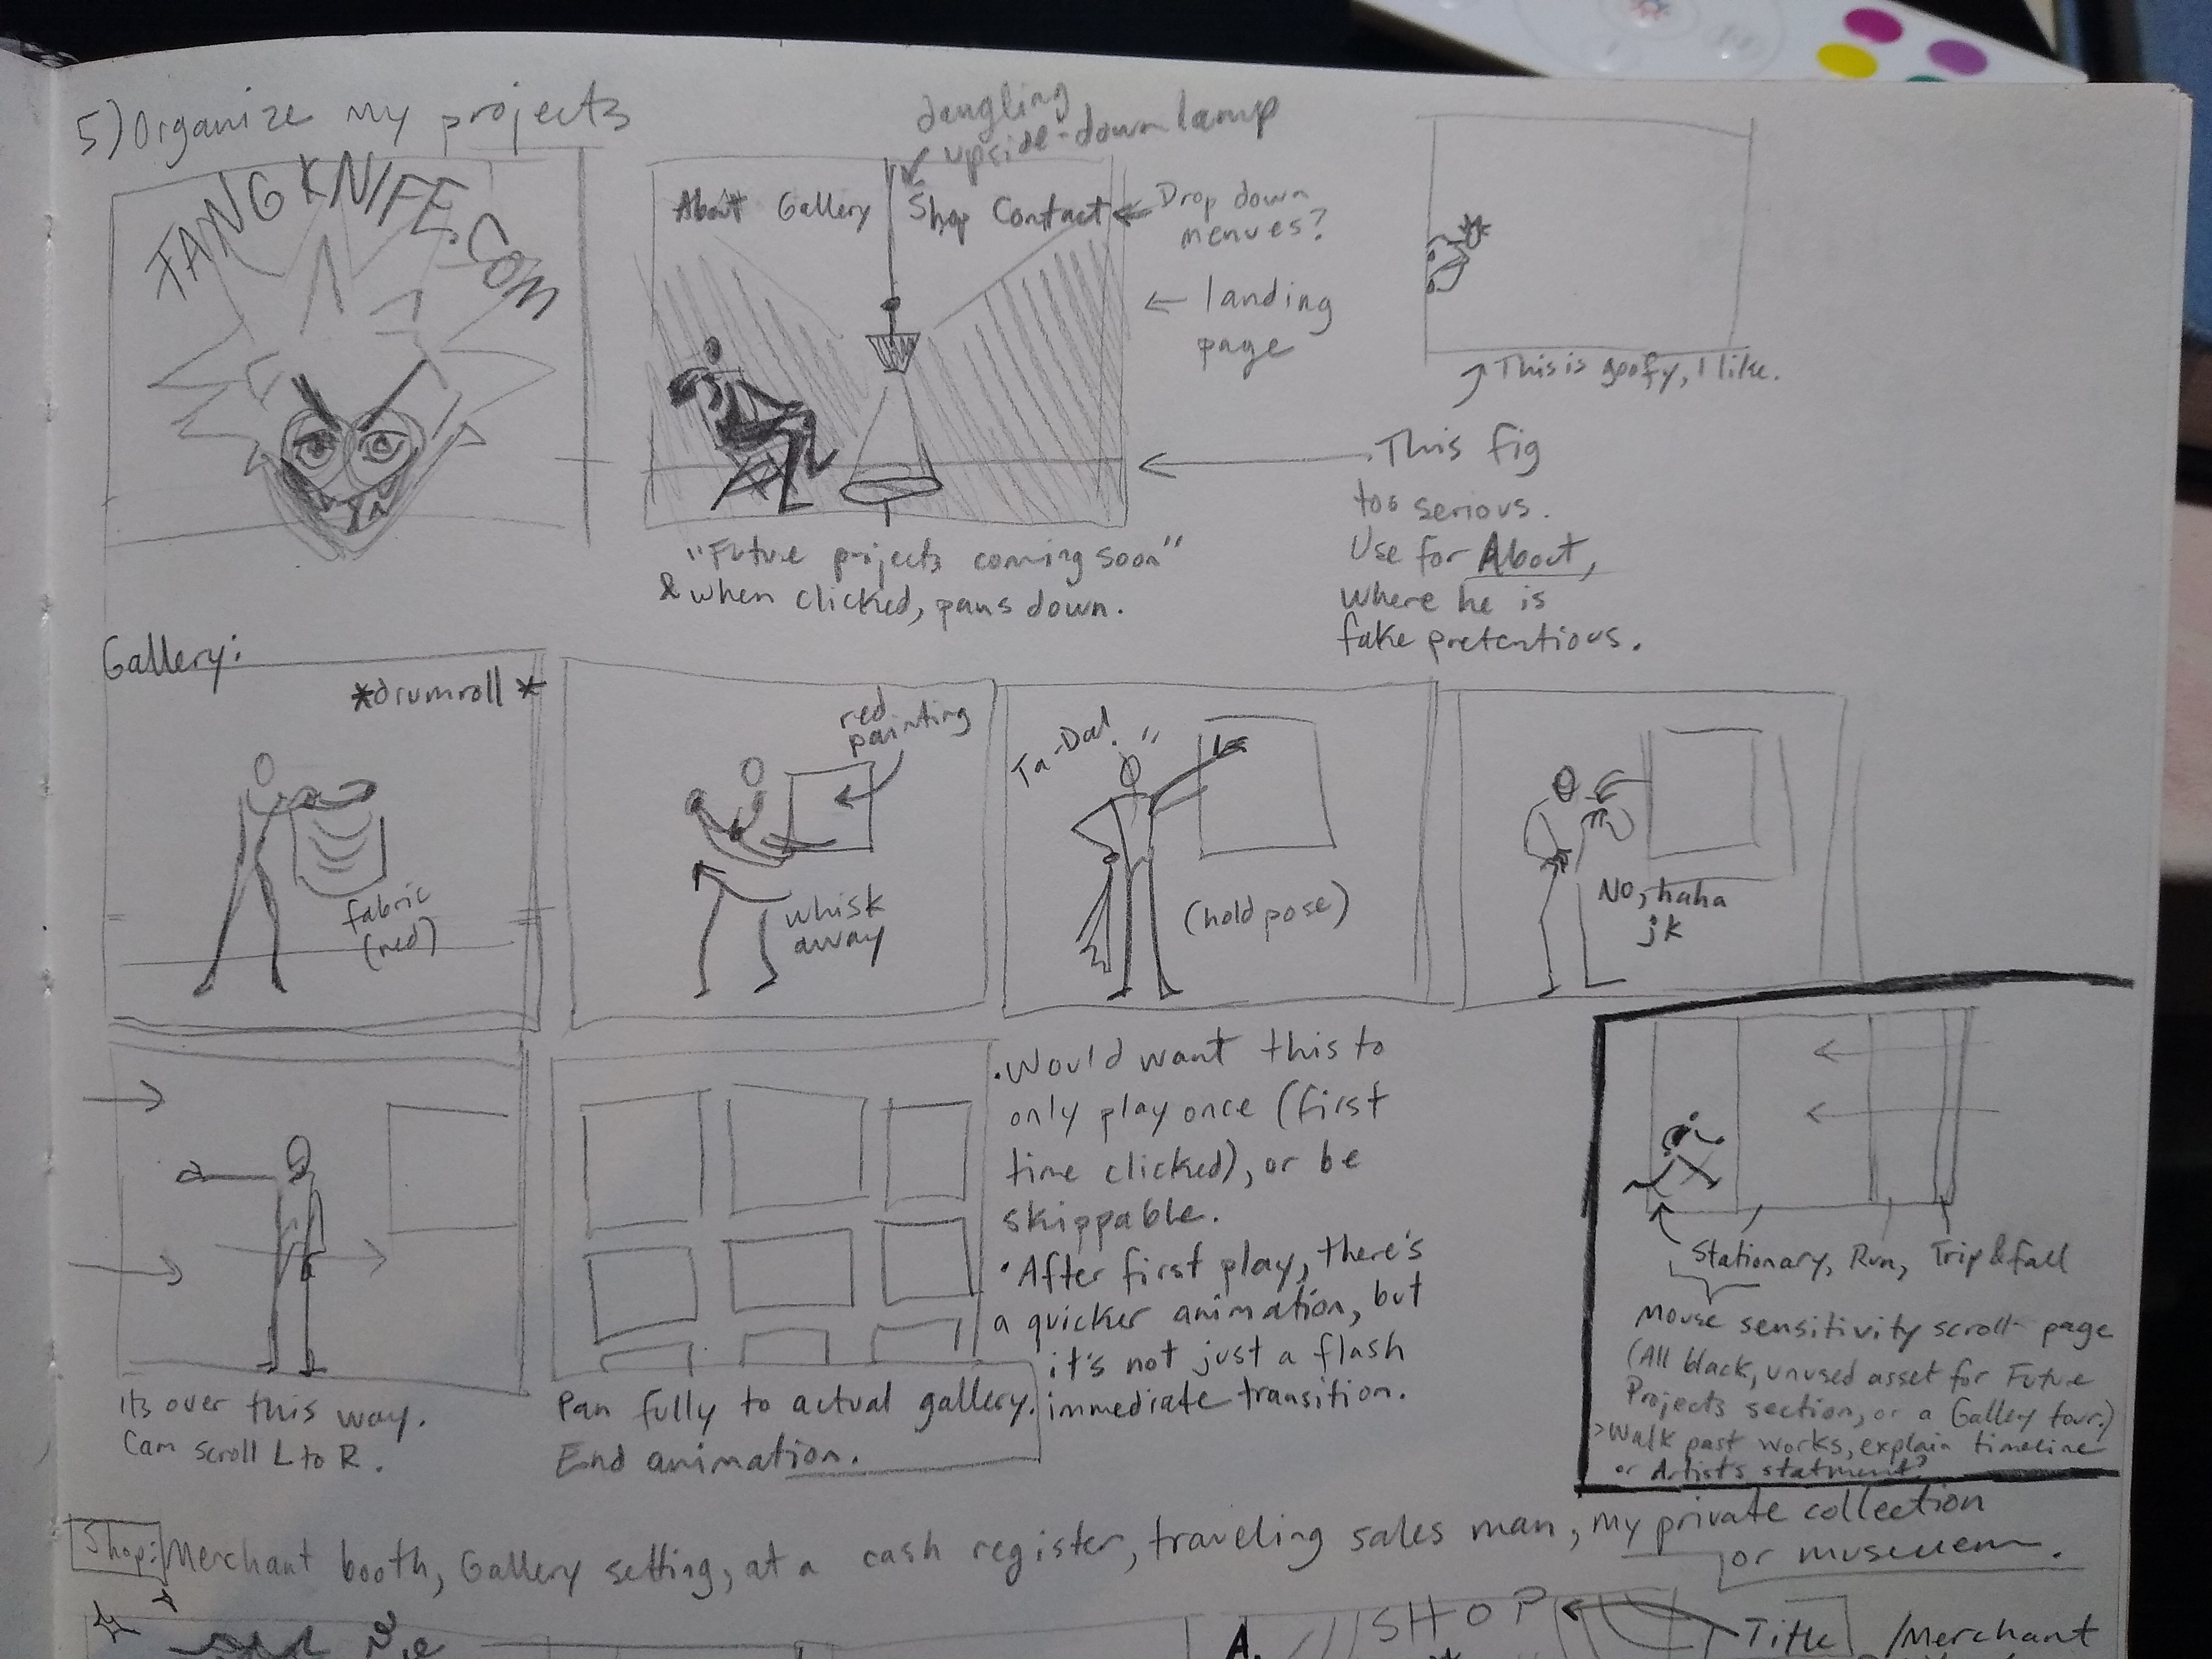 5) Organize my projects
FANGKNIFE.COM
dangling
upside-down lamp
About Gallery Shop Contact
Drop down
menues?
landing
page
This is goofy, I like.
This fig
too serious.
Use for About,
where he is
fake pretentious.
"Future projects coming soon"
& when clicked, pans down.
Gallery:
*drumroll*
fabric
(red)
red
painting
whisk
away
Ta-Da!"
(hold pose)
No, haha
jk
Its over this way.
Cam scroll L to R.
Pan fully to actual gallery.
End animation.
• Would want this to
only play once (first
time clicked), or be
skippable.
• After first play, there's
a quicker animation, but
it's not just a flash
immediate transition.
Stationary, Run, Trip & fall
Mouse sensitivity scroll page
(All black, unused asset for Future
Projects section, or a Gallery tour.)
> Walk past works, explain timeline
or Artists statment?
Shop: Merchant booth, Gallery setting, at a cash register, traveling sales man, my private collection
or museuem.
A.
SHOP
Title
/Merchant